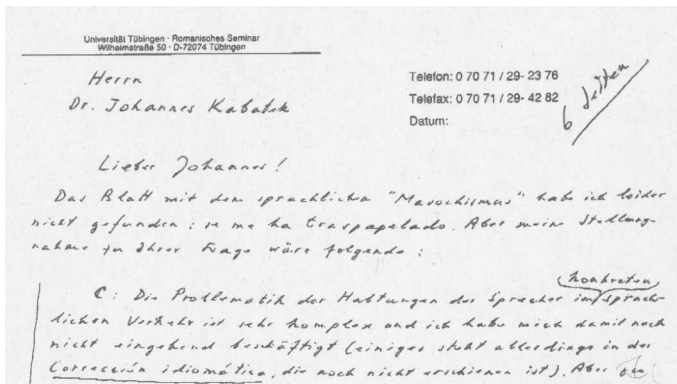 Universität Tübingen · Romanisches Seminar
Wilhelmstraße 50 · D-72074 Tübingen
Telefon: 0 70 71 / 29- 23 76
Telefax: 0 70 71 / 29- 42 82
Datum:
6 Seiten
Herrn
Dr. Johannes Kabatek
Lieber Johannes!
Das Blatt mit dem sprachlichen "Masochismus" habe ich leider
nicht gefunden: se me ha traspapelado. Aber meine Stellung-
nahme zu Ihrer Frage wäre folgende:
konkreten
C: Die Problematik der Haltungen der Sprecher im sprach-
lichen Verkehr ist sehr komplex und ich habe mich damit noch
nicht eingehend beschäftigt (einiges steht allerdings in der
Corrección idiomática, die noch nicht erschienen ist). Aber